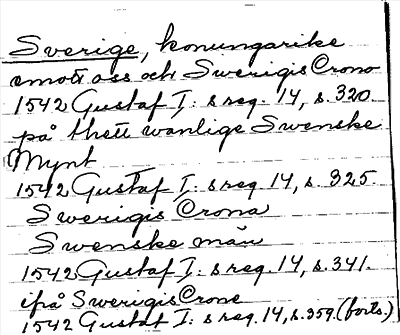 Sverige, konungarike
emott oss och Swerigis Crono
1542 Gustaf I: s reg. 14, s. 320.
på thett wanlige Swenske
Mynt
1542 Gustaf I: s reg. 14, s. 325.
Swerigis Crona
Swenske män
1542 Gustaf I: s reg. 14, s. 341.
ifrå Swerigis Crone
1542 Gustaf I: s reg. 14, s. 359. (forts.)